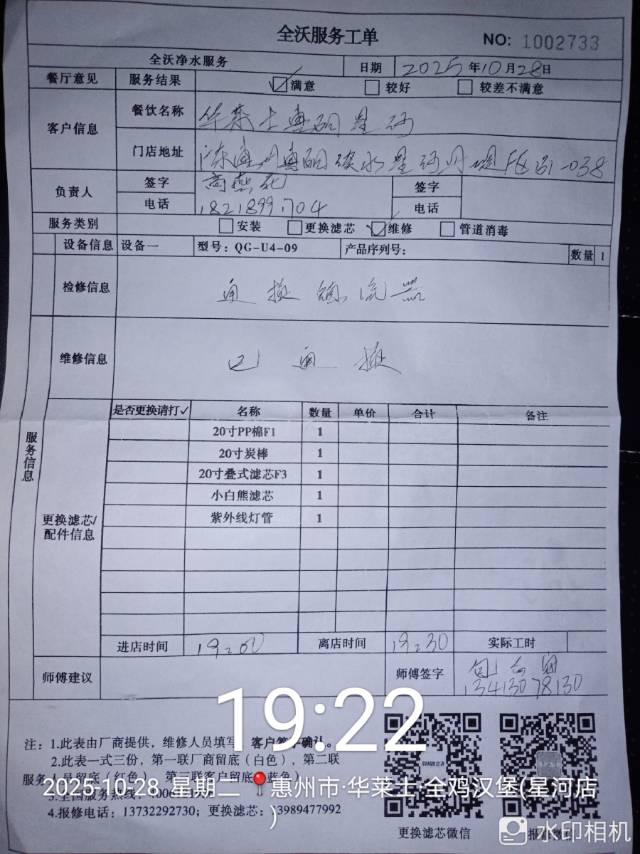 全沃服务工单
NO: 1002733
全沃净水服务 日期 2025年10月28日
餐厅意见 服务结果 ☑满意 □较好 □较差不满意
客户信息 餐饮名称 华莱士惠阳星河
门店地址
负责人 签字 签字
电话 电话
服务类别 □安装 □更换滤芯 ☑维修 □管道消毒
服务信息
设备信息 设备一 型号: QG-U4-09 产品序列号: 数量 1
检修信息 更换镇流器
维修信息 已更换
更换滤芯/配件信息
是否更换请打✓ 名称 数量 单价 合计 备注
20寸PP棉F1 1
20寸炭棒 1
20寸叠式滤芯F3 1
小白熊滤芯 1
紫外线灯管 1
进店时间 19:00 离店时间 19:30 实际工时
师傅建议 师傅签字
13413078130
19:22
注: 1.此表由厂商提供, 维修人员填写 客户签字确认。
2.此表一式三份, 第一联厂商留底(白色), 第二联
2025-10-28 星期二 惠州市·华莱士·全鸡汉堡(星河店
)
4.报修电话: 13732292730; 更换滤芯: 13989477992
更换滤芯微信
水印相机